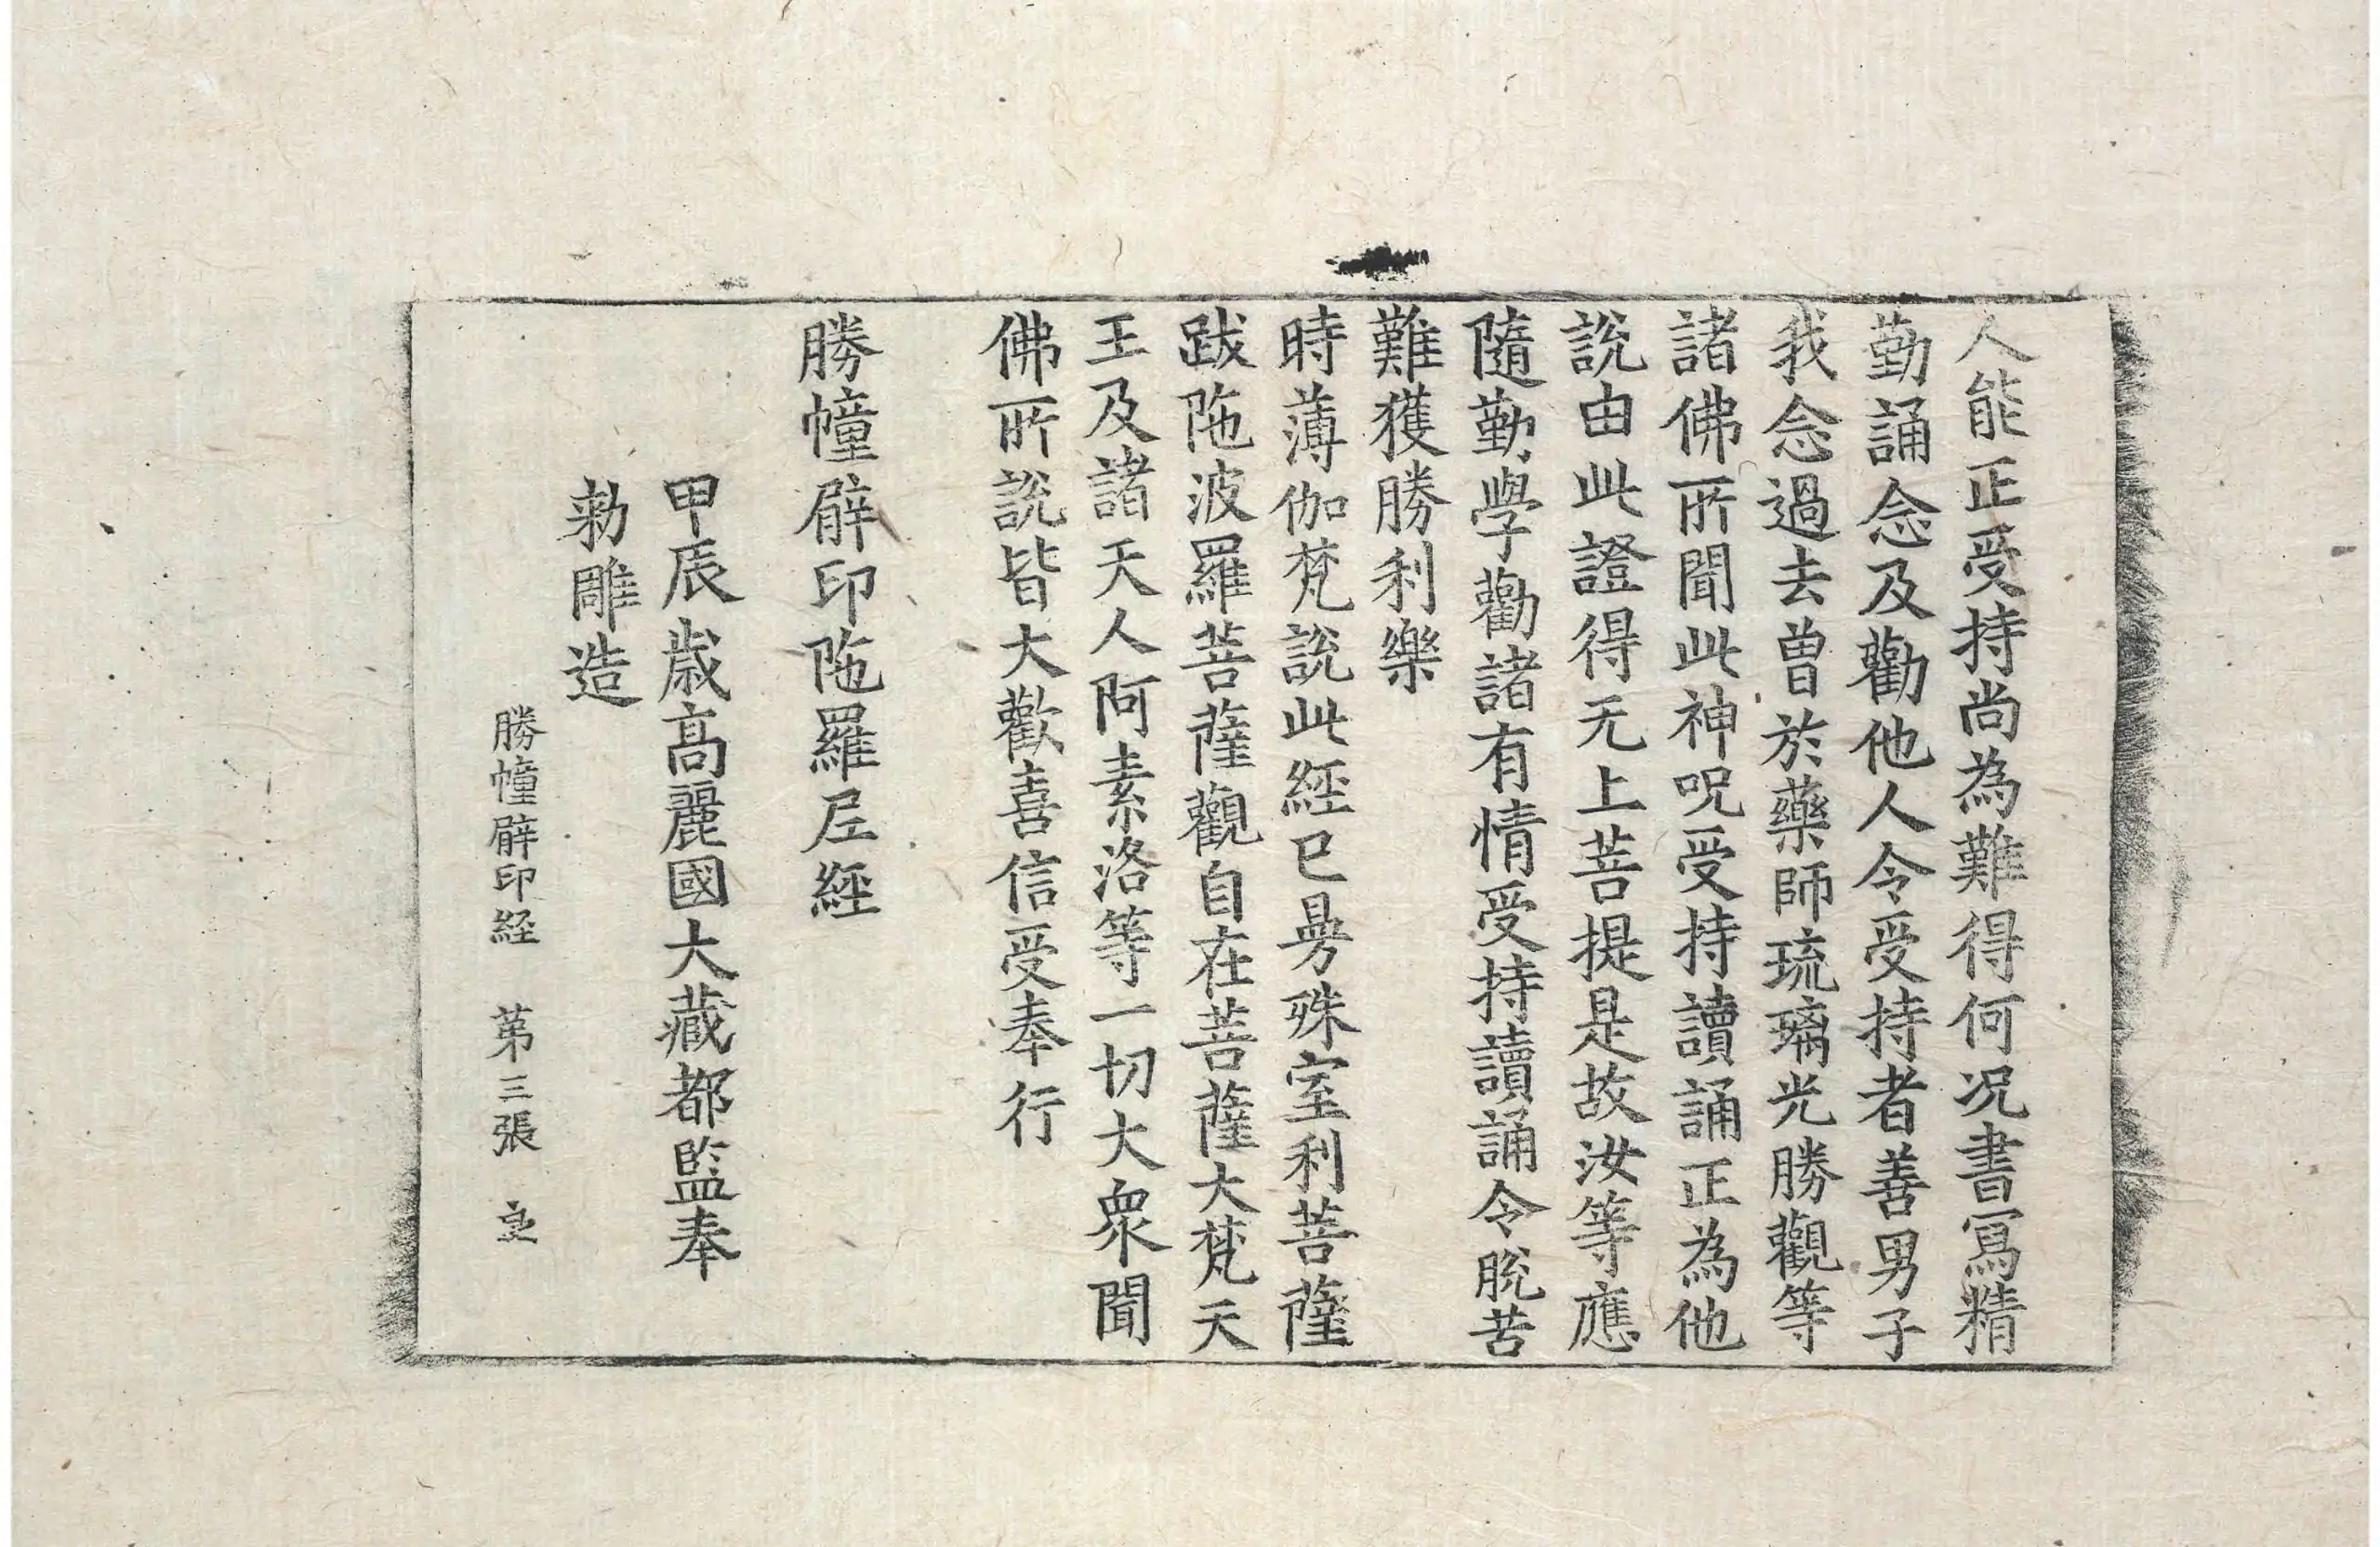 人能正受持尚為難得何況書寫精
勤誦念及勸他人令受持者善男子
我念過去曾於藥師琉璃光勝觀等
諸佛所聞此神呪受持讀誦正為他
說由此證得无上菩提是故汝等應
隨勤學勸諸有情受持讀誦令脫苦
難獲勝利樂
時薄伽梵說此經已曼殊室利菩薩
跋陁波羅菩薩觀自在菩薩大梵天
王及諸天人阿素洛等一切大衆聞
佛所說皆大歡喜信受奉行
勝幢臂印陁羅尼經
甲辰歲高麗國大藏都監奉
勑雕造
勝幢臂印経 第三張